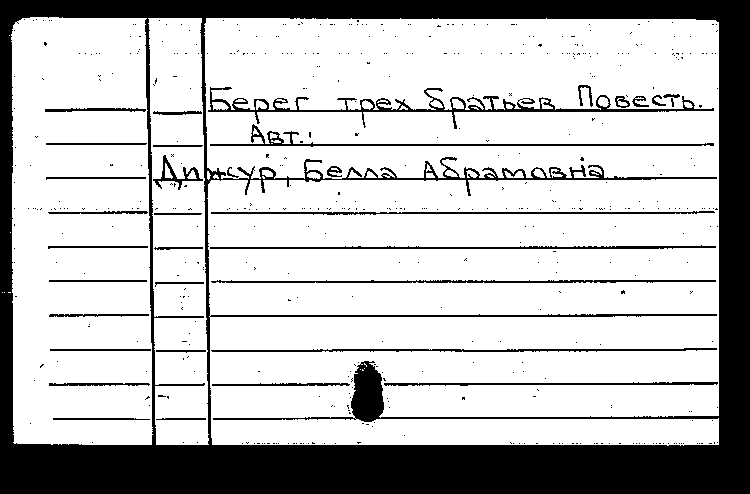 Берег трех братьев Повесть.
Авт.:
Дижур, Белла Абрамовна.